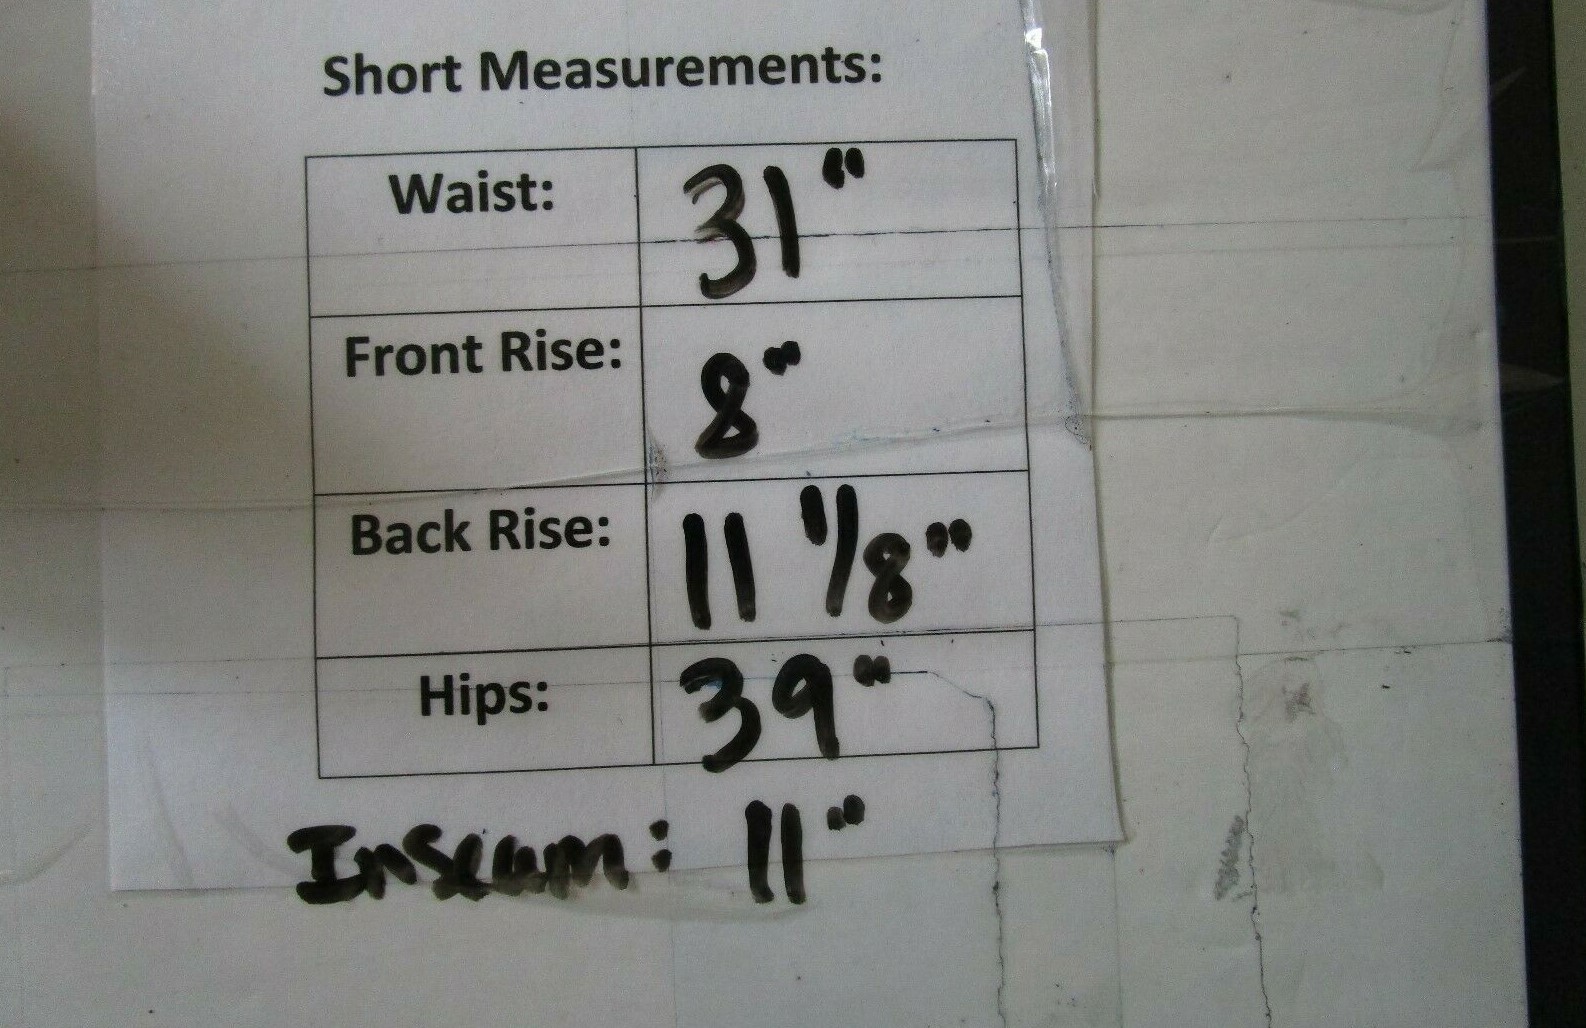 Short Measurements:
Waist: 31"
Front Rise: 8"
Back Rise: 11 1/8"
Hips: 39"
Inseam: 11"